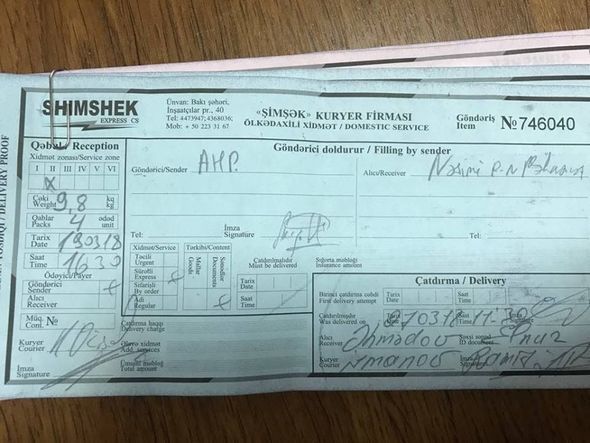 SHIMSHEK
EXPRESS CS
Ünvan: Bakı şəhəri,
İnşaatçılar pr., 40
Tel: 4473947; 4368036;
Mob: + 50 223 31 67
«ŞİMŞƏK» KURYER FİRMASI
ÖLKƏDAXİLİ XİDMƏT / DOMESTIC SERVICE
Göndəriş
Item
№ 746040
DELIVERY PROOF
Qəbul/ Reception
Xidmət zonası/Service zone
I II III IV V VI
X
Çəki
Weight
9,8
kq
kg
Qablar
Packs
4
ədəd
unit
Tarix
Date
190318
Saat
Time
1630
Ödəyici/Payer
Göndərici
Sender
Alıcı
Receiver
Müq.
Cont. №
Kuryer
Courier
İmza
Signature
Göndərici doldurur / Filling by sender
Göndərici/Sender
AHP.
Alıcı/Receiver
Nəsimi
Tel:
İmza
Signature
Tel:
Xidmət/Service
Təcili
Urgent
Sürətli
Express
Sifarişli
By order
Adi
Regular
Tərkibi/Content
Mallar
Goods
Sənədlər
Documents
Çatdırılmalıdır
Must be delivered
Tarix
Date
Saat
Time
Sığorta məbləği
Insurance amount
Çatdırma haqqı
Delivery charge
Əlavə xidmət
Add. services
Ümumi məbləğ
Total amount
Çatdırma / Delivery
Birinci çatdırma cəhdi
First delivery attempt
Tarix
Date
Saat
Time
Çatdırılmışdır
Was delivered on
Alıcı
Receiver
Əhmədov
Şəxsi sənəd
ID document
Kuryer
Courier
İmza
Signature